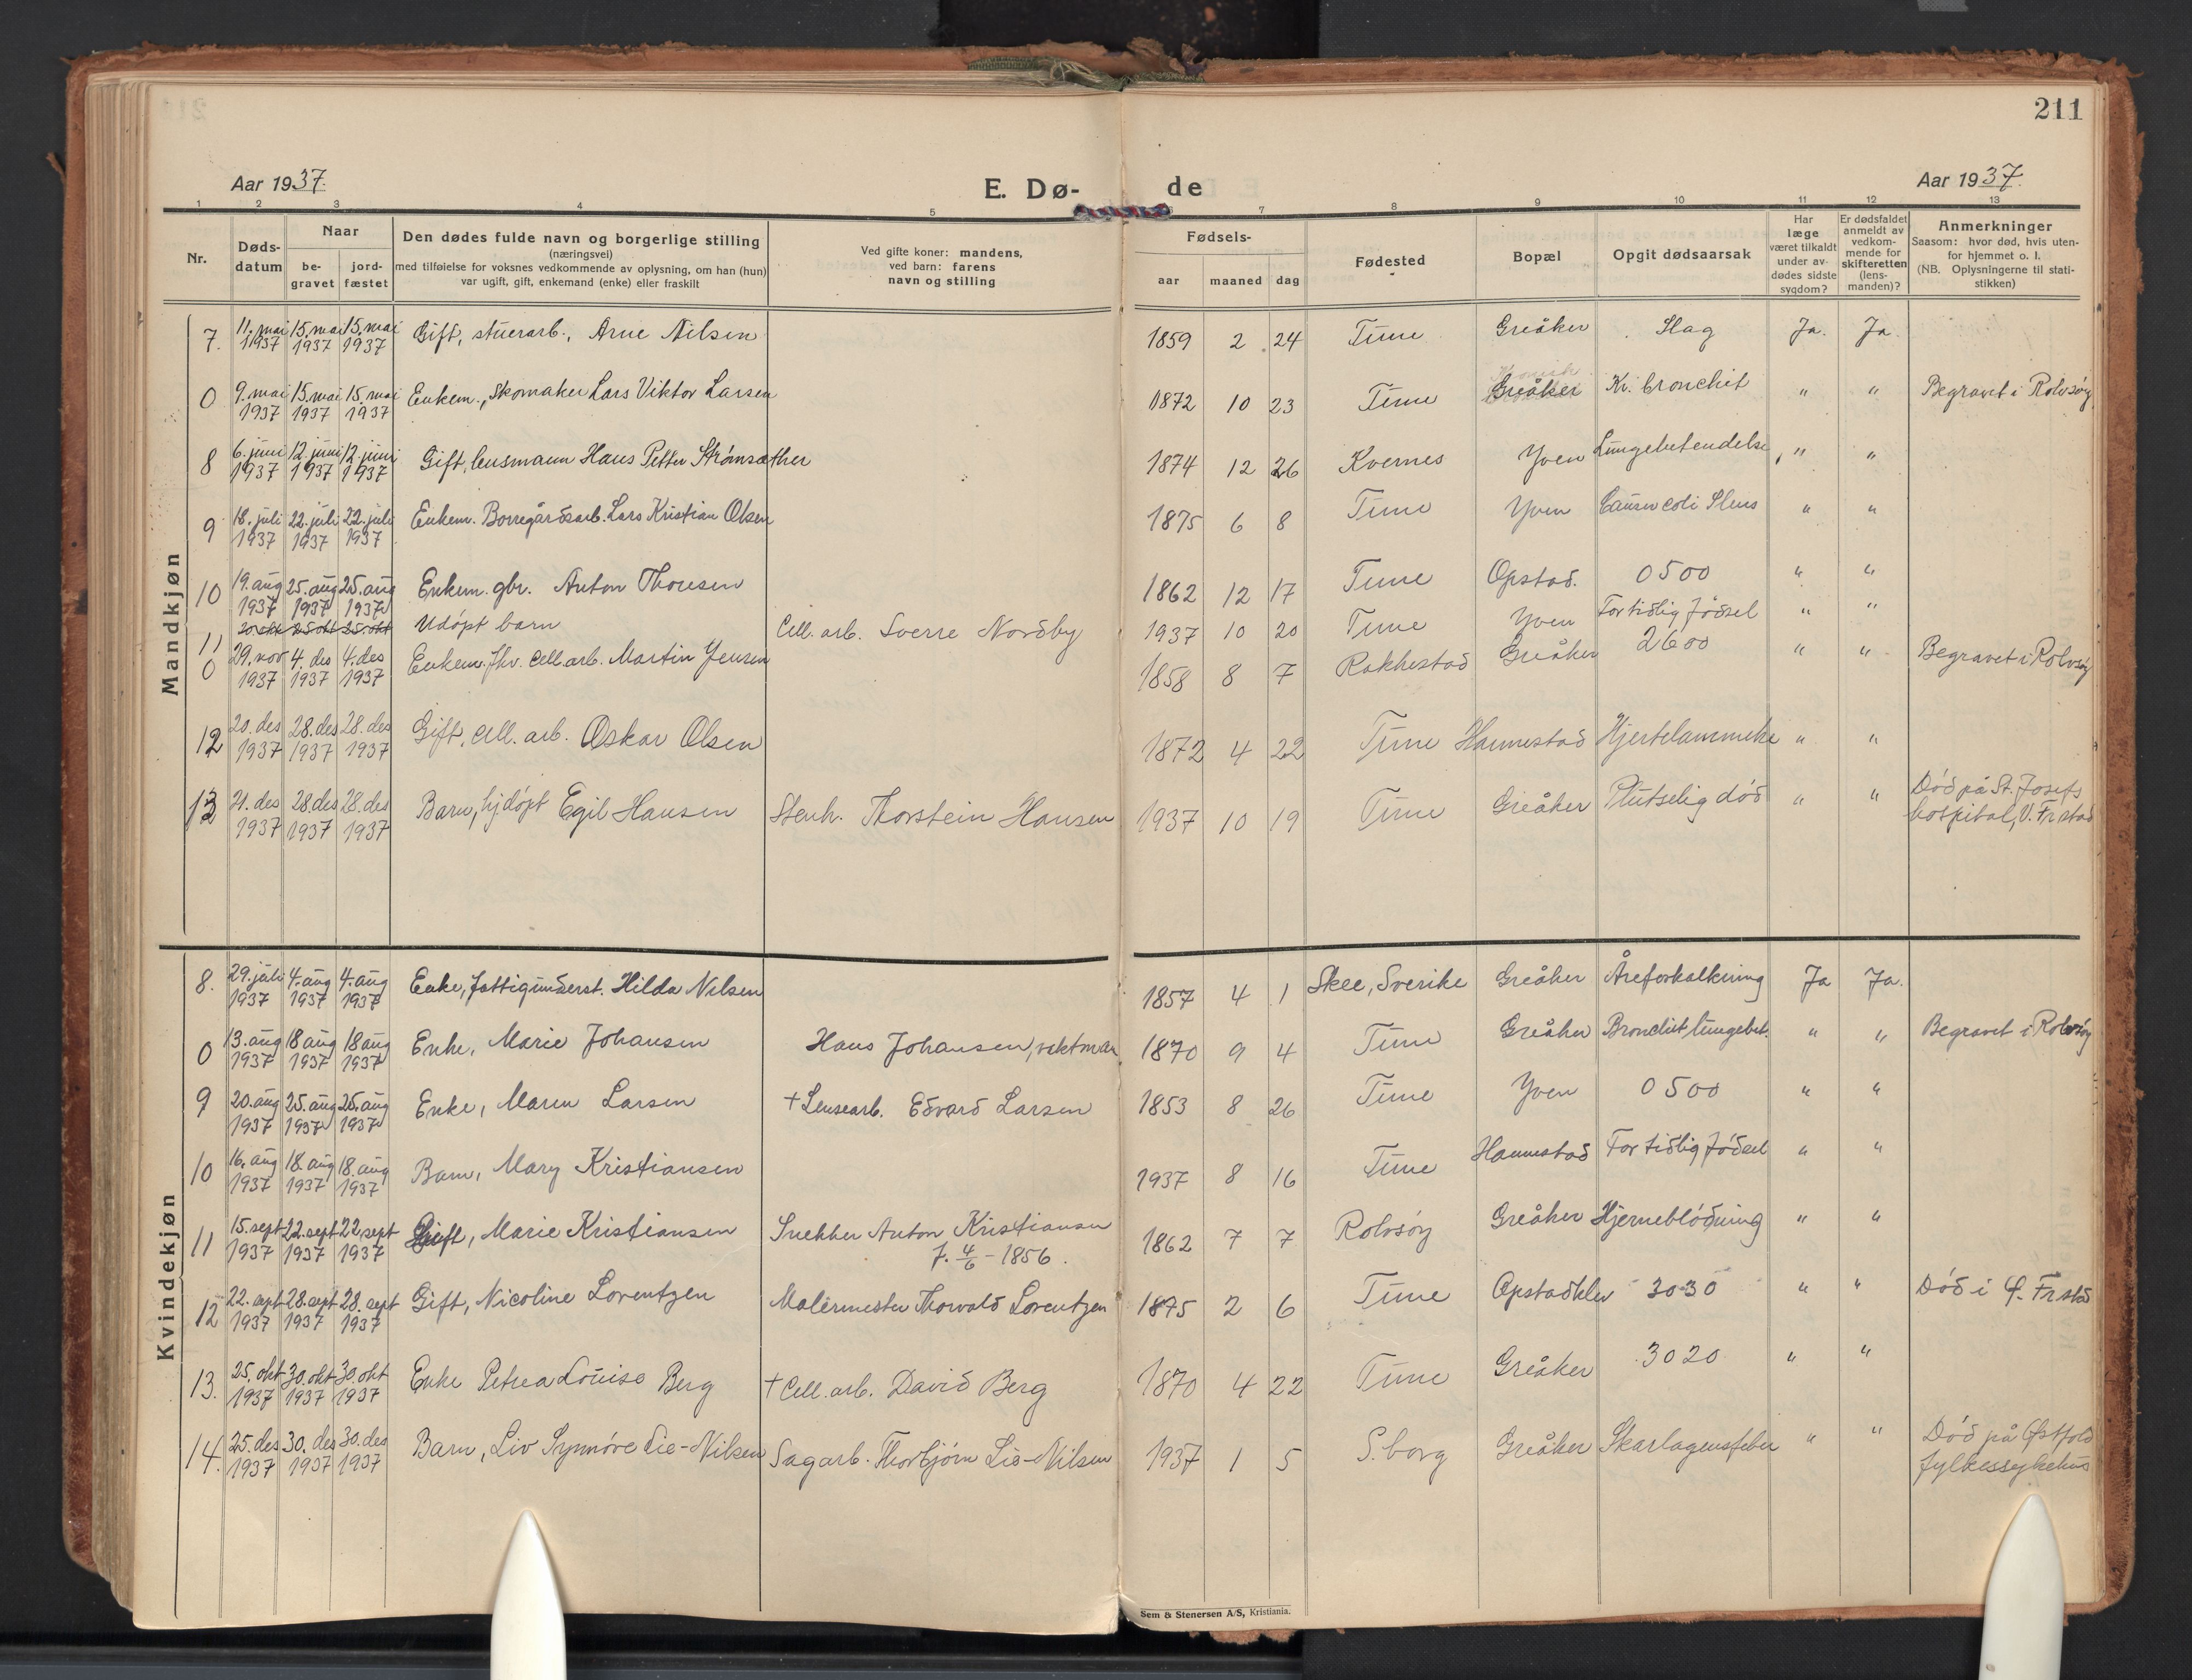 211
Aar 1937.
E. Dø-
de
Aar 1937.
1 2 3 4 5 7 8 9 10 11 12 13
Nr.
Døds-
datum
Naar
be-
gravet
jord-
fæstet
Den dødes fulde navn og borgerlige stilling
(næringsvei)
med tilføielse for voksnes vedkommende av oplysning, om han (hun)
var ugift, gift, enkemand (enke) eller fraskilt
Ved gifte koner: mandens,
ved barn: farens
navn og stilling
Fødsels-
aar maaned dag
Fødested
Bopæl
Opgit dødsaarsak
Har
læge
været tilkaldt
under av-
dødes sidste
sygdom?
Er dødsfaldet
anmeldt av
vedkom-
mende for
skifteretten
(lens-
manden)?
Anmerkninger
Saasom: hvor død, hvis uten-
for hjemmet o. l.
(NB. Oplysningerne til stati-
stikken)
Mandkjøn
7. 11. mai 1937 15. mai 1937 15. mai 1937 Gift, stuerarb., Arne Nilsen 1859 2 24 Tune Greåker Slag Ja. Ja.
0 9. mai 1937 15. mai 1937 15. mai 1937 Enkem., Skomaker Lars Viktor Larsen 1872 10 23 Tune Greåker Kr. bronchit " " Begravet i Rolvsøy
8 6. juni 1937 12. juni 1937 12. juni 1937 Gift, lensmann Hans Petter Strømsæther 1874 12 26 Kvernes Yven Lungebetendelse " "
9 18. juli 1937 22. juli 1937 22. juli 1937 Enkem. Borregårdsarb. Lars Kristian Olsen 1875 6 8 Tune Yven " "
10 19. aug 1937 25. aug 1937 25. aug 1937 Enkem. gbr. Anton Thoresen 1862 12 17 Tune Opstad. 0500 " "
11 20. okt 25 okt 25. okt Udøpt barn Cell. arb. Sverre Nordby 1937 10 20 Tune Yven For tidlig fødsel " "
0 29. nov 1937 4. des 1937 4. des 1937 Enkem. fhv. cell. arb. Martin Jensen 1858 8 7 Rakkestad Greåker 2600 " " Begravet i Rolvsøy
12 20. des 1937 28. des 1937 28. des 1937 Gift, cell. arb. Oskar Olsen 1872 4 22 Tune Hannestad Hjertelammelse " "
13 21. des 1937 28 des 1937 28. des 1937 Barn, hjdøpt Egil Hansen Stenh. Thorstein Hansen 1937 10 19 Tune Greåker Plutselig død " " Død på St. Josefs
hospital, V. Frstad
Kvindekjøn
8. 29. juli 1937 4. aug 1937 4. aug 1937 Enke, fattigunderst. Hilda Nilsen 1857 4 1 Skee, Sverike Greåker Åreforkalkning Ja Ja.
0 13. aug 1937 18 aug 1937 18 aug 1937 Enke, Marie Johansen Hans Johansen, vaktman 1870 9 4 Tune Greåker Bronchit lungebet. " " Begravet i Rolvsøy
9 20. aug 1937 25. aug 1937 25. aug 1937 Enke, Maren Larsen + Lensearb. Edvard Larsen 1853 8 26 Tune Yven 0500 " "
10 16. aug 1937 18. aug 1937 18. aug 1937 Barn, Mary Kristiansen 1937 8 16 Tune Hannestad For tidlig fødsel " "
11 15. sept 1937 22. sept 1937 22. sept 1937 Gift, Marie Kristiansen Snekker Anton Kristiansen 1862 7 7 Rolvsøy Greåker Hjerneblødning " "
f. 4/6 - 1856.
12 22. sept 1937 28. sept 1937 28. sept 1937 Gift, Nicoline Lorentzen Malermester Thorvald Lorentzen 1875 2 6 Tune Opstadklev 3030 " " Død i Ø. Frstad
13. 25. okt 1937 30. okt 1937 30. okt 1937 Enke Petrea Louise Berg + Cell. arb. David Berg 1870 4 22 Tune Greåker 3020 " "
14. 25. des 1937 30. des 1937 30. des 1937 Barn, Liv Synnöve Lie-Nilsen Sagarb. Thorbjørn Lie-Nilsen 1937 1 5 S.borg Greåker Skarlagensfeber " " Død på Østfold
fylkessykehus
Sem & Stenersen A/S, Kristiania.